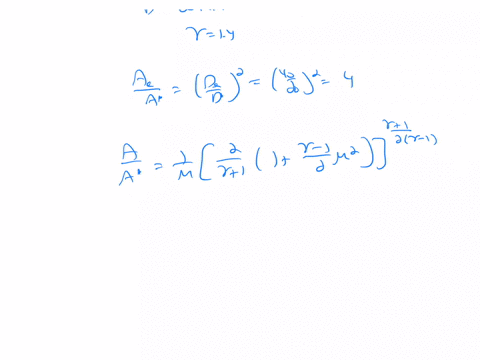 γ=1.4
Ae/A* = (De/D*)² = (40/20)² = 4
A/A* = 1/M [2/γ+1 (1+ γ-1/2 M²)]^γ+1/2(γ-1)